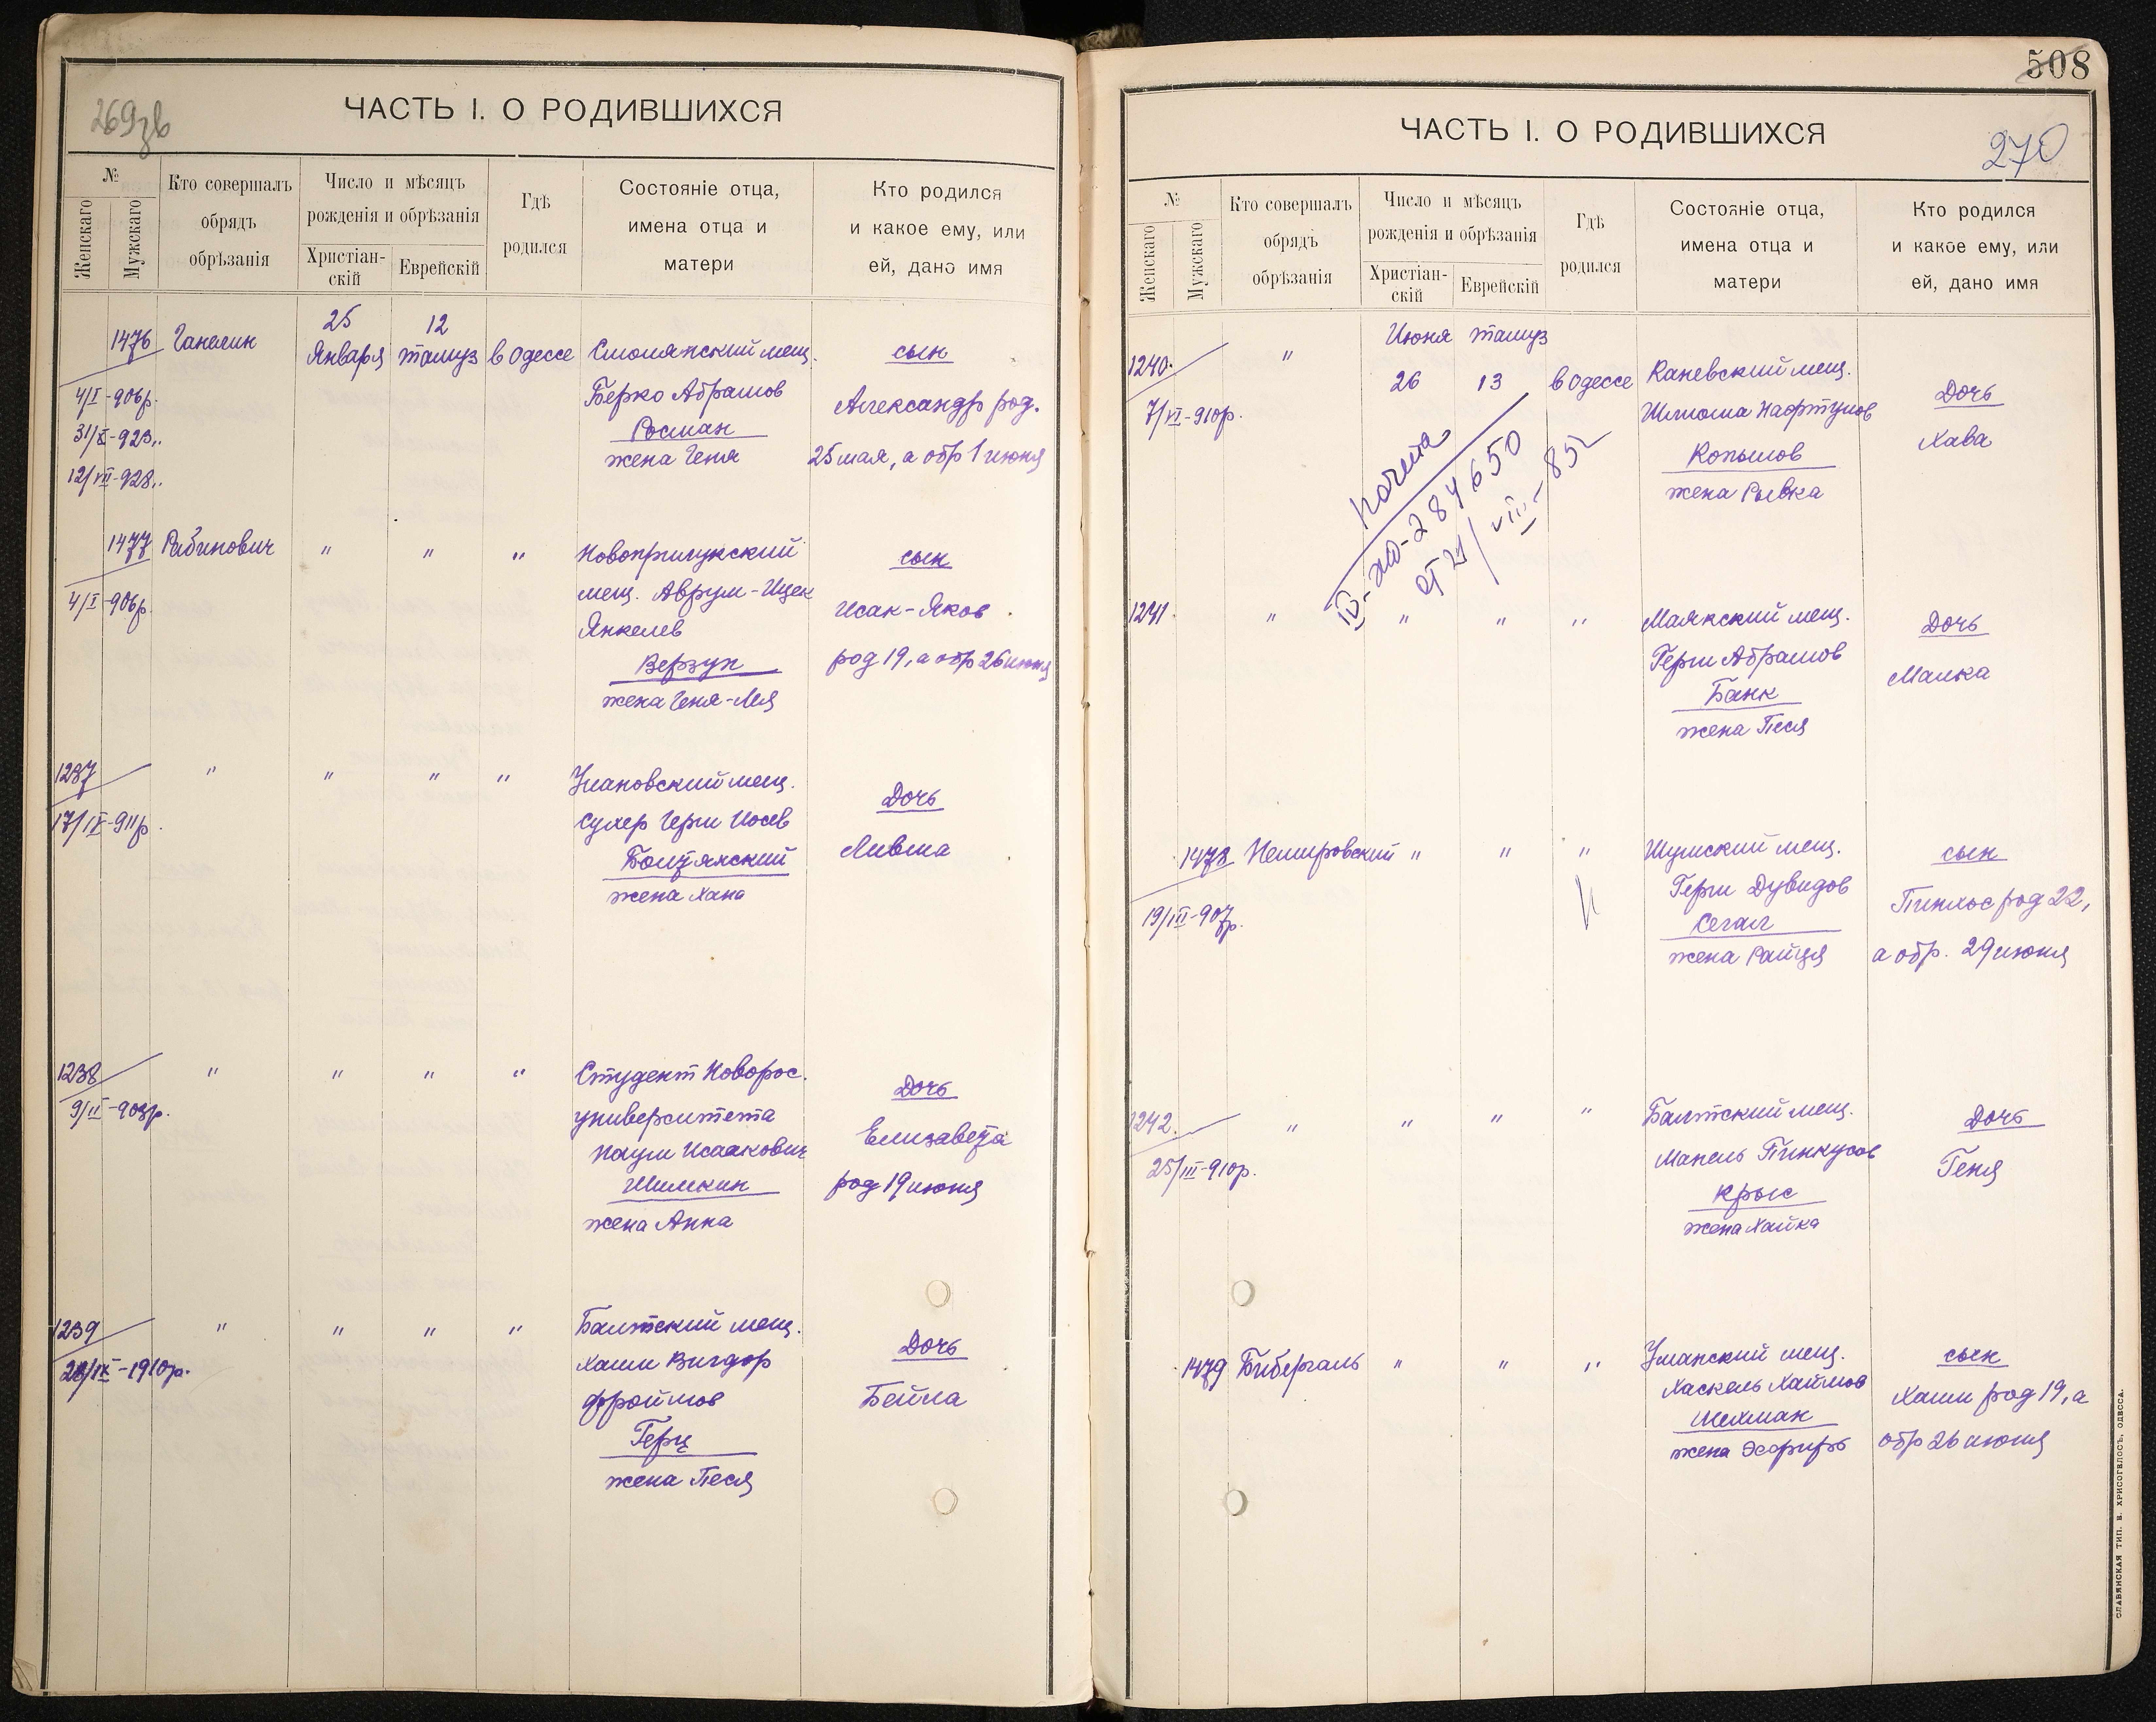 269зв
ЧАСТЬ I. О РОДИВШИХСЯ
№
Женскаго
Мужскаго
Кто совершалъ
обрядъ
обрѣзанія
Число и мѣсяцъ
рожденія и обрѣзанія
Христіан-
скій
Еврейскій
Гдѣ
родился
Состояніе отца,
имена отца и
матери
Кто родился
и какое ему, или
ей, дано имя
25 12
1476 Ганелин Января тамуз в Одессе Смолянский мещ. сын
4/I-906р. Берко Абрамов Александр род.
31/X-923.. Росман 25 мая, а обр 1 июня
12/VII-928.. жена Геня
1477 Рабинович " " " Новоприлукский сын
4/I-906р. мещ. Аврум-Ицек Исак-Яков
Янкелев род 19, а обр 26 июня
Верзуп
жена Геня-Лея
1237 " " " " Улановский мещ. Дочь
17/IX-911р. Сухер Герш Иосев Ливша
Болтянский
жена Хана
1238 " " " " Студент Новорос. Дочь
9/II-903р. университета Елизавета
Наум Исаакович род 19 июня
Шимкин
жена Анна
1239 " " " " Балтский мещ. Дочь
/IX-1910р. Хаим Вигдор Бейла
Фроимов
Герц
жена Песя
508
ЧАСТЬ I. О РОДИВШИХСЯ
270
№
Женскаго
Мужскаго
Кто совершалъ
обрядъ
обрѣзанія
Число и мѣсяцъ
рожденія и обрѣзанія
Христіан-
скій
Еврейскій
Гдѣ
родился
Состояніе отца,
имена отца и
матери
Кто родился
и какое ему, или
ей, дано имя
Июня тамуз
1240. " 26 13 в Одессе Каневский мещ. Дочь
7/VI-910р. Шлиома Нафтулов Хава
Копылов
жена Рывка
284650
21/VIII-85
1241. " " " " Маякский мещ. Дочь
Герш Абрамов Малка
Банк
жена Песя
1478 Немировский " " " Шумский мещ. сын
19/III-907р. Герш Дувидов Пинхос род 22,
Сегал а обр. 29 июня
жена Райця
1242. " " " " Балтский мещ. Дочь
25/III-910р. Манель Пинкусов Геня
Крыс
жена Хайка
1479 Бибергаль " " " Уманский мещ. сын
Хаскель Хаимов Хаим род 19, а
Шехман обр 26 июня
жена Эсфирь
СЛАВЯНСКАЯ ТИП. Н. ХРИСОГЕЛОСЪ, ОДЕССА.